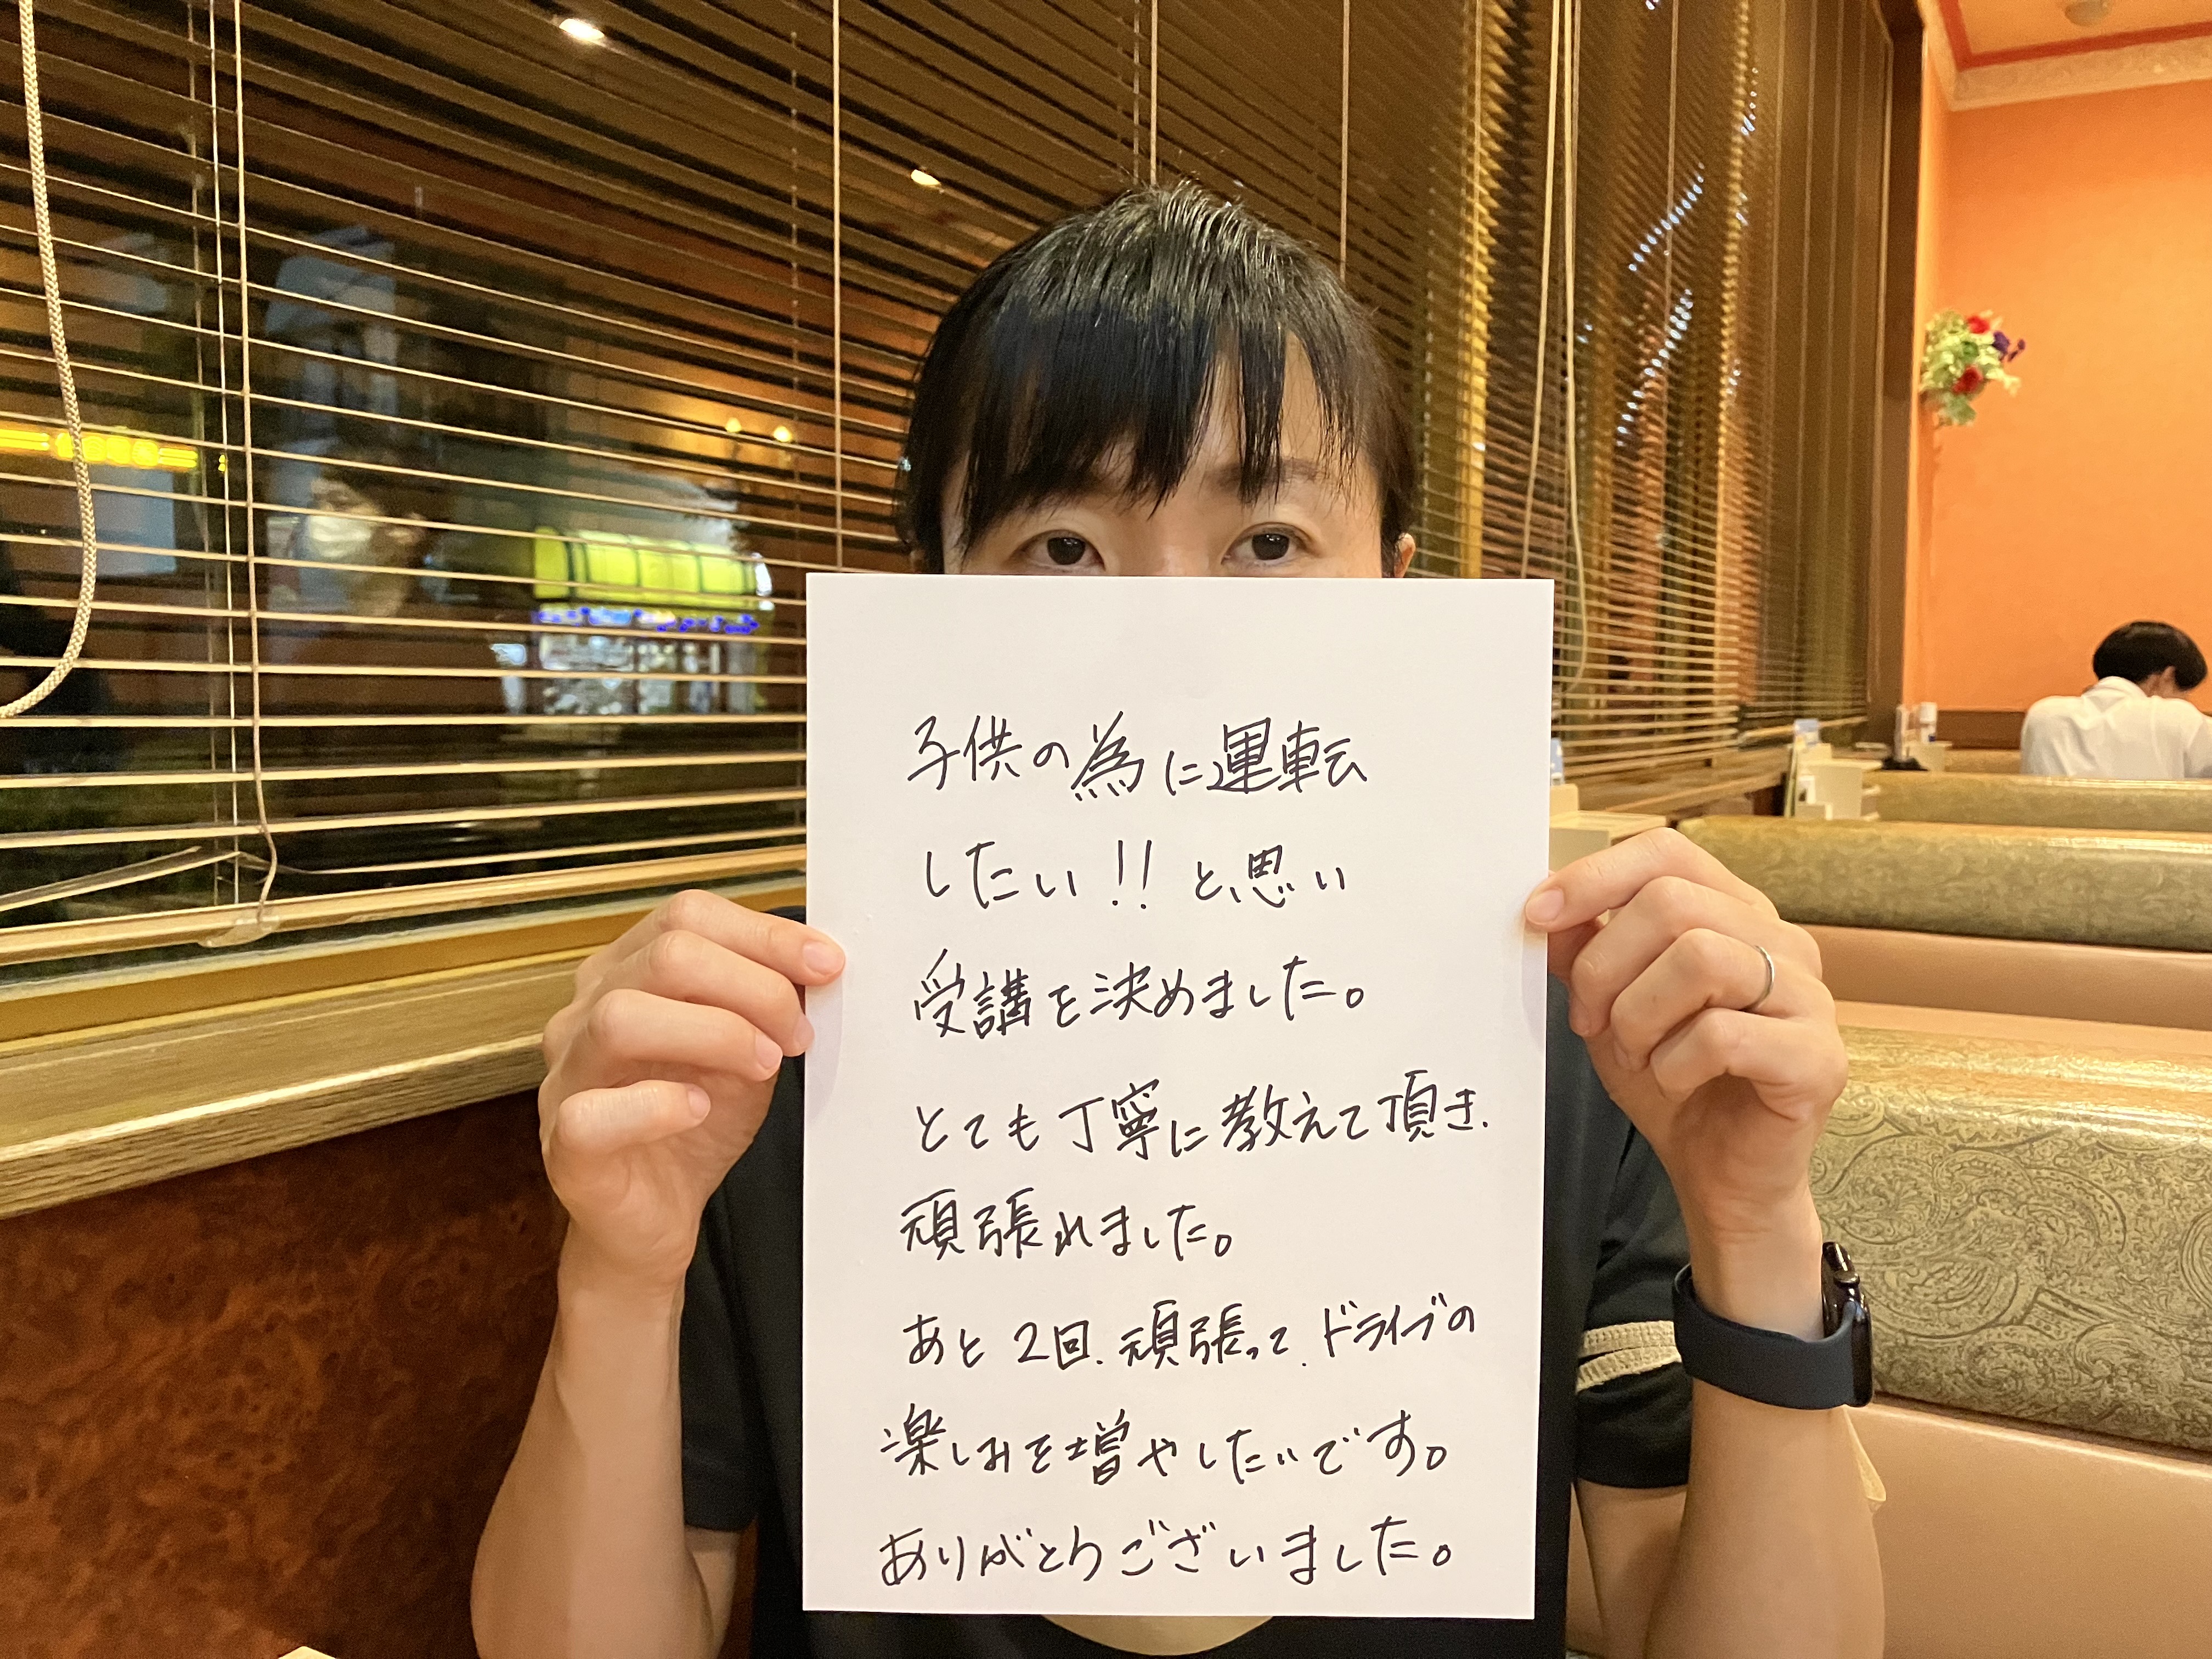 子供の為に運転
したい!!と思い
受講を決めました。
とても丁寧に教えて頂き、
頑張れました。
あと2回、頑張って、ドライブの
楽しみを増やしたいです。
ありがとうございました。